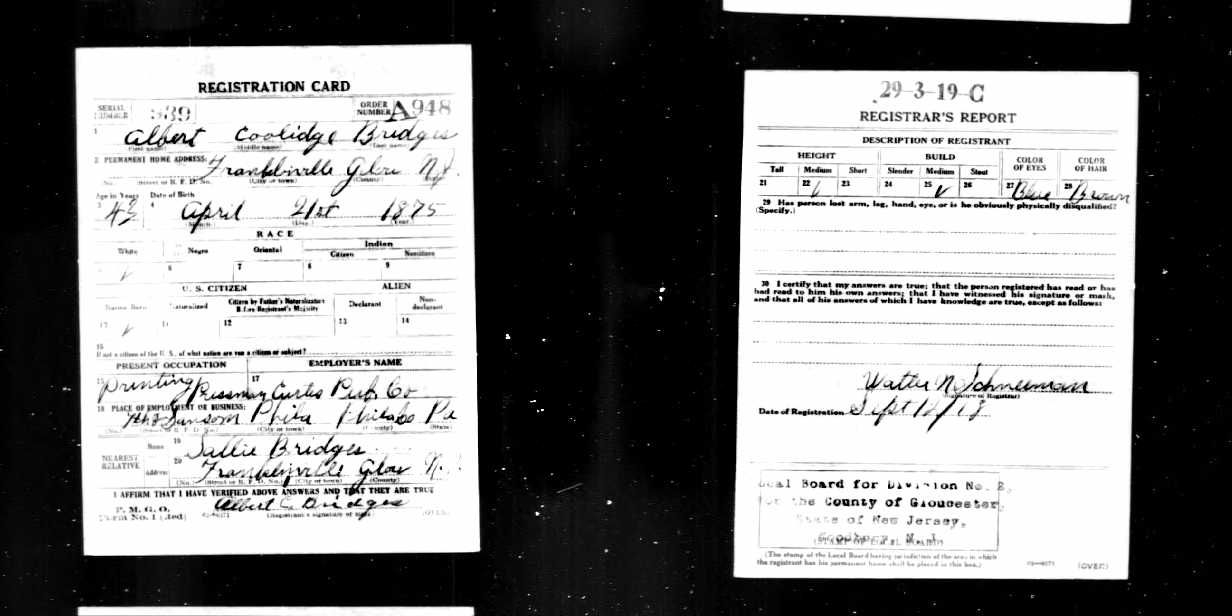 REGISTRATION CARD
SERIAL NUMBER 339 ORDER NUMBER A948
1 Albert Coolidge Bridges
(First name) (Middle name) (Last name)
2 PERMANENT HOME ADDRESS: Franklinville Glou N.J.
(No.) (Street or R. F. D. No.) (City or town) (County) (State)
Age in Years Date of Birth
3 43 4 April 21st 1875
(Month.) (Day.) (Year.)
RACE
White Negro Oriental Indian
Citizen Noncitizen
✓ 6 7 8 9
U. S. CITIZEN ALIEN
Native Born Naturalized Citizen by Father's Naturalization Before Registrant's Majority Declarant Non-declarant
10 ✓ 11 12 13 14
15
If not a citizen of the U. S., of what nation are you a citizen or subject?
PRESENT OCCUPATION EMPLOYER'S NAME
16 Printing Pressman 17 Curtis Pub. Co
18 PLACE OF EMPLOYMENT OR BUSINESS:
7th & Sansom Phila Philada Pa
(No.) (Street or R. F. D. No.) (City or town) (County) (State)
NEAREST RELATIVE
Name 19 Sallie Bridges
Address 20 Franklinville Glou N.
(No.) (Street or R. F. D. No.) (City or town) (County)
I AFFIRM THAT I HAVE VERIFIED ABOVE ANSWERS AND THAT THEY ARE TRUE
P. M. G. O.
Form No. 1 (Red) Albert C. Bridges
(Registrant's signature or mark) (OVER)
29-3-19-C
REGISTRAR'S REPORT
DESCRIPTION OF REGISTRANT
HEIGHT BUILD COLOR OF EYES COLOR OF HAIR
Tall Medium Short Slender Medium Stout
21 22 ✓ 23 24 25 ✓ 26 27 Blue 28 Brown
29 Has person lost arm, leg, hand, eye, or is he obviously physically disqualified?
(Specify.)
30 I certify that my answers are true; that the person registered has read or has
had read to him his own answers; that I have witnessed his signature or mark,
and that all of his answers of which I have knowledge are true, except as follows:
Walter N. Schneeman
(Signature of Registrar)
Date of Registration Sept 12/18
Local Board for Division No. 2,
for the County of Gloucester,
State of New Jersey,
Woodbury, N. J.
(STAMP OF LOCAL BOARD)
(The stamp of the Local Board having jurisdiction of the area in which
the registrant has his permanent home shall be placed in this box.)
03—6171 (OVER)